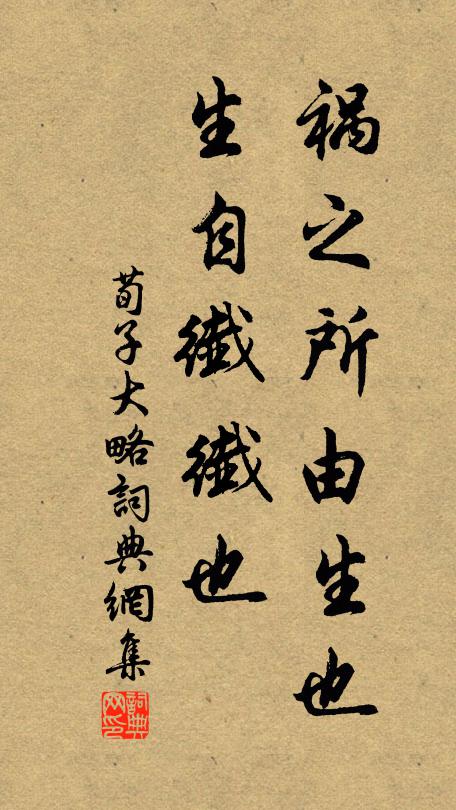 祸之所由生也
生自纖纖也
荀子大略詞典網集
詞典
网印